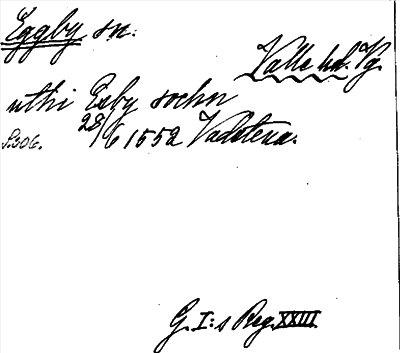 Eggby sn.
Valle hd. Vg.
uthi Exby sochn
S.306. 28/6 1552 Vadstena.
G. I:s Reg. XXIII